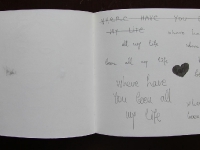 WHERE HAVE YOU
MY LIFE
where have
all my life
been all my life
where have
you been all
my life